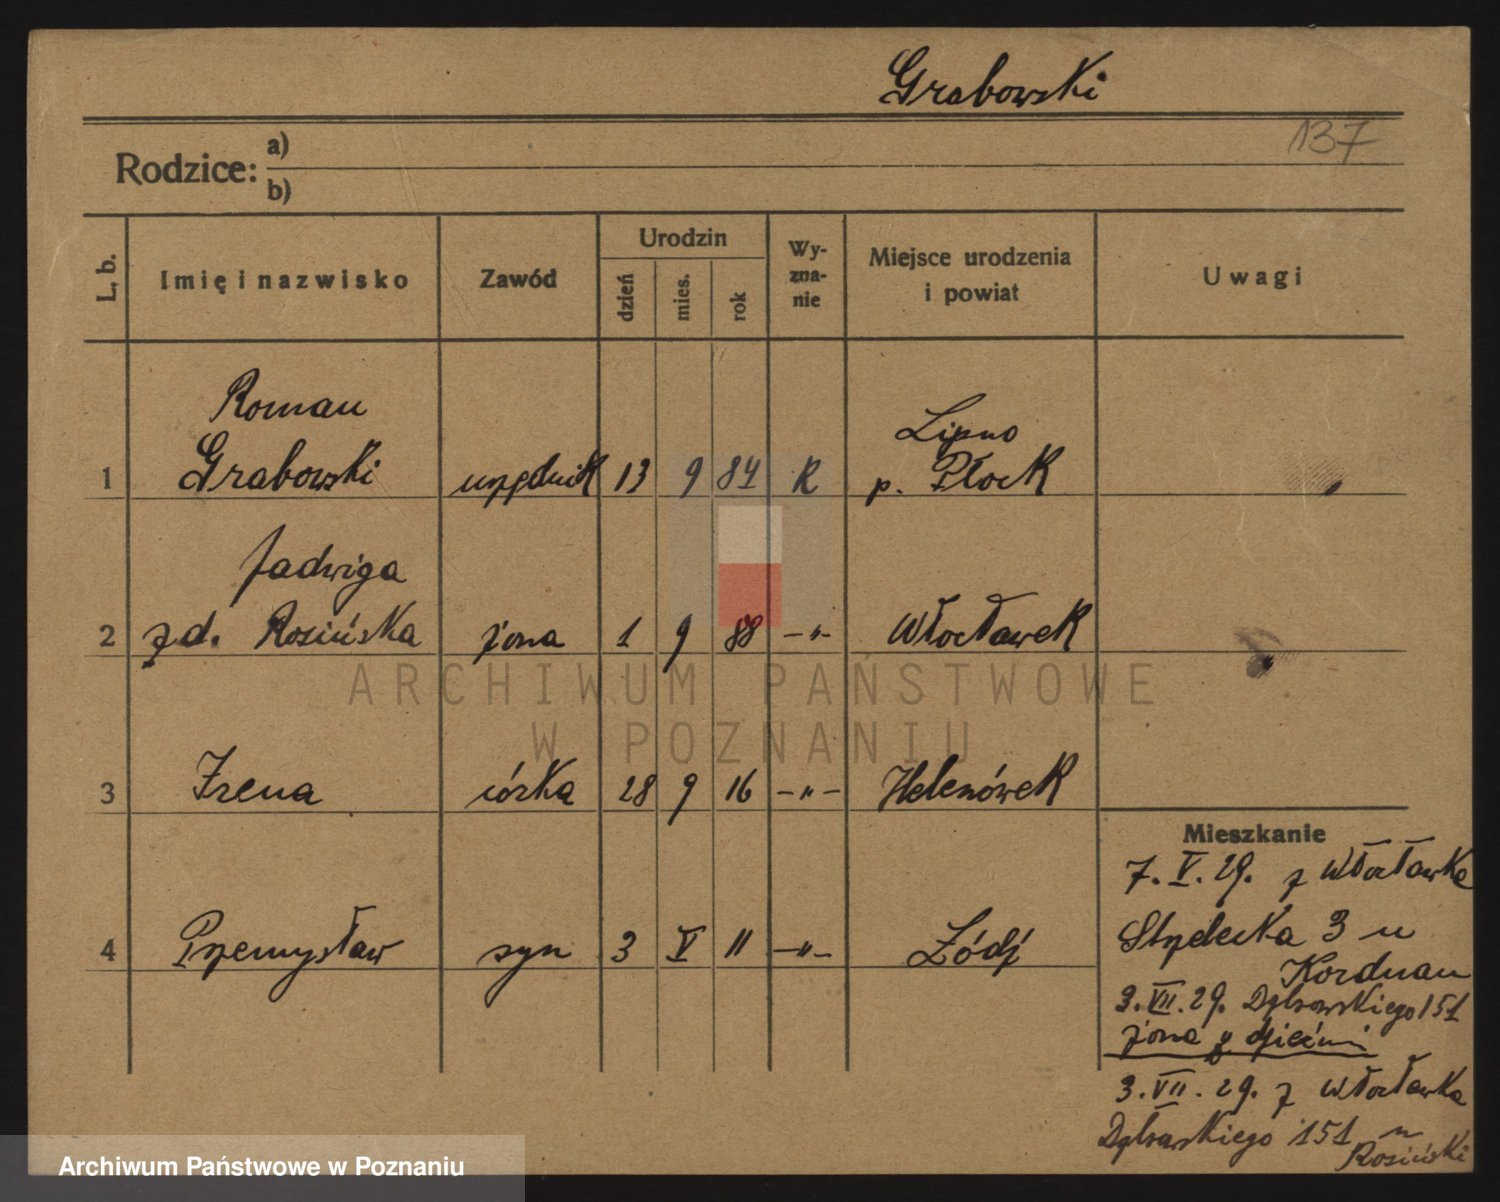 Grabowski
137
Rodzice: a)
b)
L. b.
Imię i nazwisko
Zawód
Urodzin
dzień
mies.
rok
Wy-
zna-
nie
Miejsce urodzenia
i powiat
Uwagi
Roman
Lipno
1 Grabowski urzędnik 13 9 84 R p. Płock
Jadwiga
2 z d. Rosińska żona 1 9 88 -"- Włocławek
3 Irena córka 28 9 16 -"- Helenówek
4 Przemysław syn 3 V 11 -"- Łódź
Mieszkanie
7. V. 29. z Włocławka
3 u
3. VII. 29. Dąbrowskiego 151
żona z dziećmi
3. VII. 29. z Włocławka
Dąbrowskiego 151 u
Rosiński
ARCHIWUM PAŃSTWOWE
W POZNANIU
Archiwum Państwowe w Poznaniu